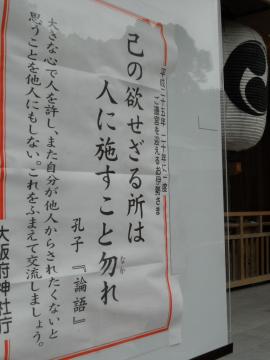 平成二十五年 二十年に一度
ご遷宮を迎えるお伊勢さま
己の欲せざる所は
人に施すこと勿れ
なか
孔子『論語』
大きな心で人を許し、また自分が他人からされたくないと
思うことを他人にもしない。これをふまえて交流しましょう。
大阪府神社庁